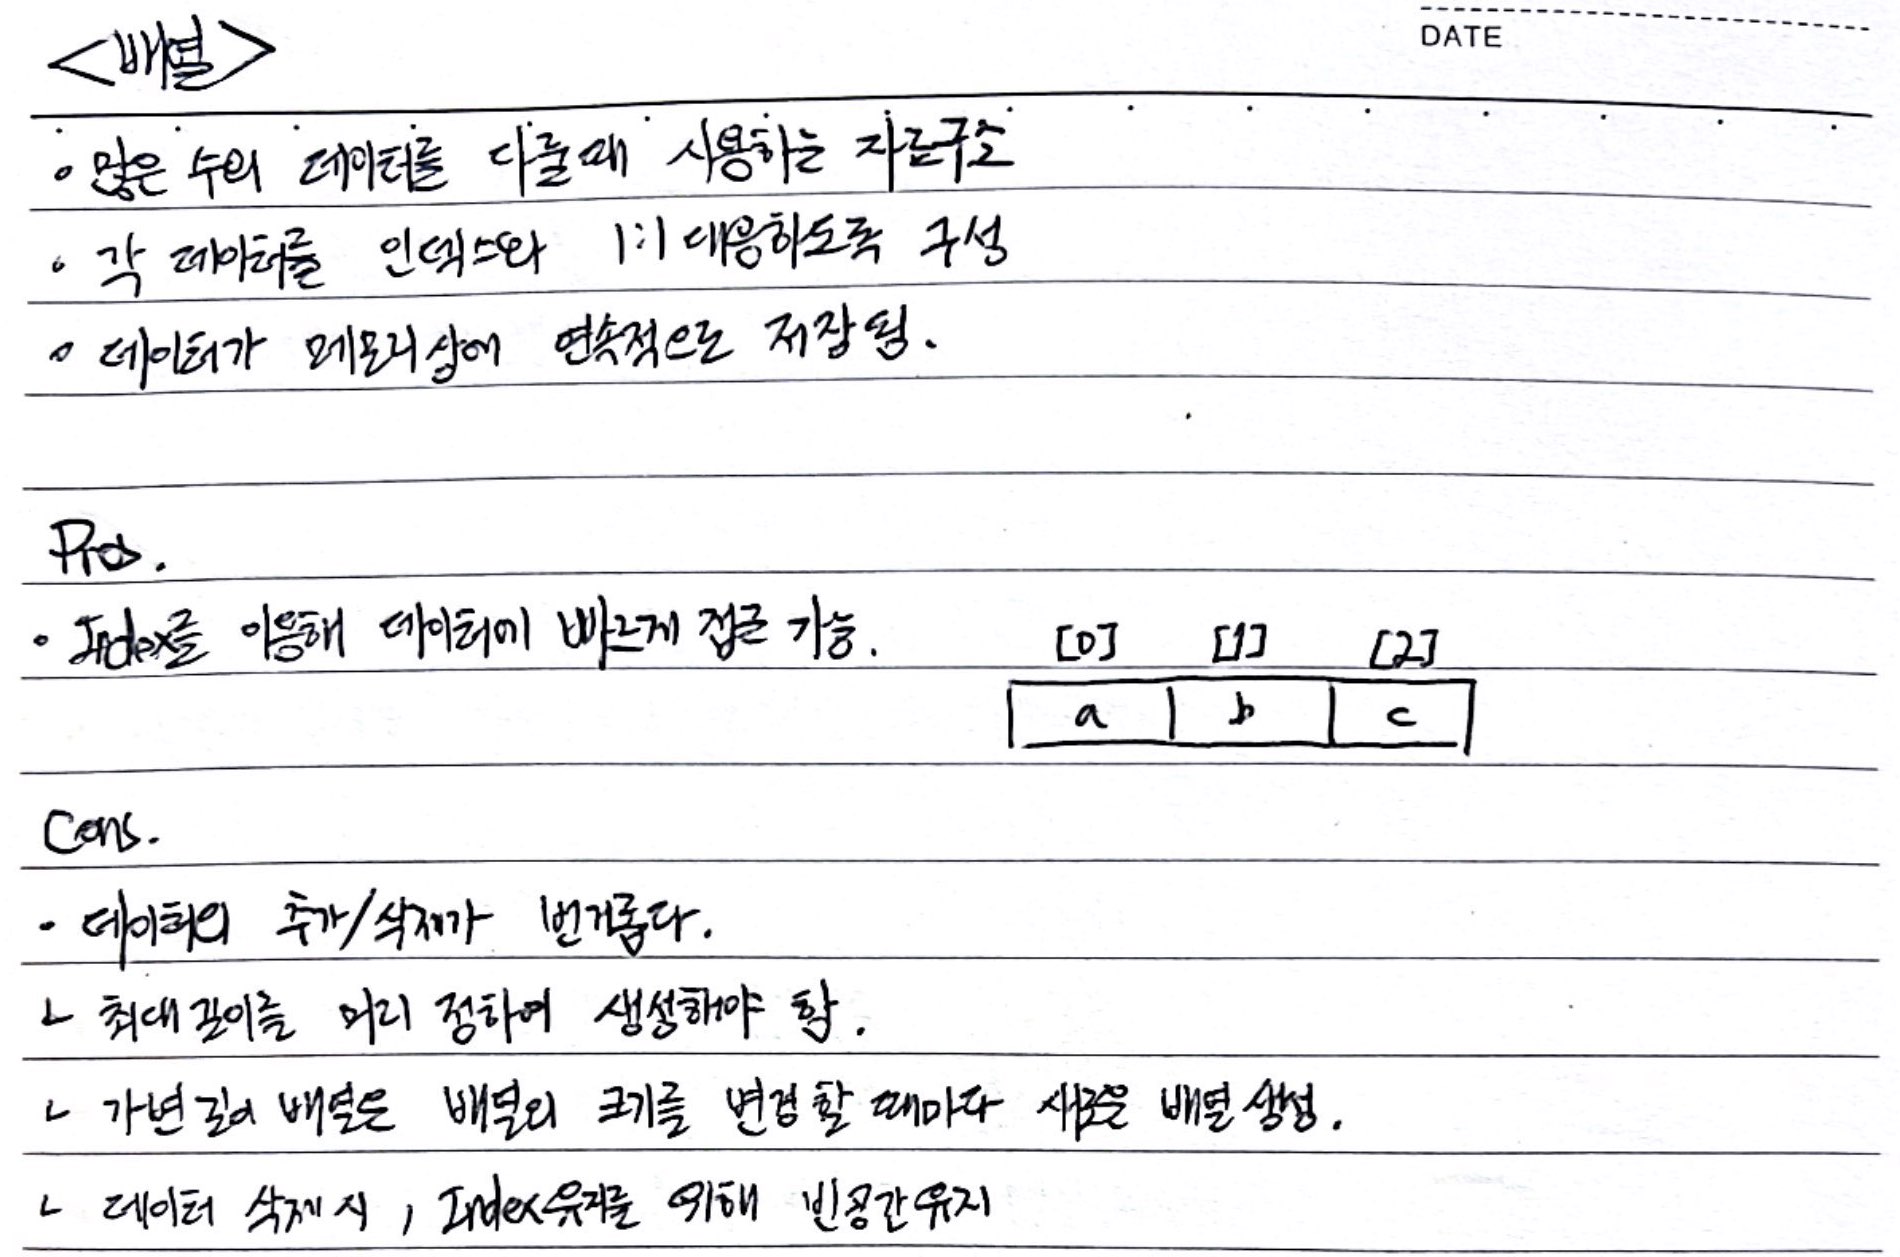 DATE
<배열>
• 많은 수의 데이터를 다룰때 사용하는 자료구조
• 각 데이터를 인덱스와 1:1 대응하도록 구성
• 데이터가 메모리상에 연속적으로 저장됨.
Pros.
• Index를 이용해 데이터에 빠르게 접근 가능.
[0] [1] [2]
a b c
Cons.
• 데이터의 추가/삭제가 번거롭다.
ㄴ 최대길이를 미리 정하여 생성해야 함.
ㄴ 가변길이 배열은 배열의 크기를 변경할 때마다 새로운 배열 생성.
ㄴ 데이터 삭제시, Index유지를 위해 빈공간유지